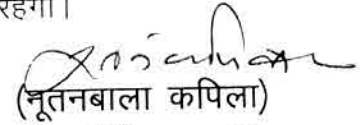 रहेगा।
(नूतनबाला कपिला)